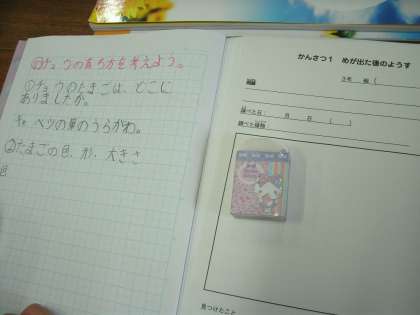 めチョウの育ち方を考えよう。
①チョウのたまごは、どこに
ありましたか。
キャベツの葉のうらがわ。
②たまごの色、形、大きさ
色
かんさつ1 めが出た後のようす
3年 組 (
調べた日: 月 日 ( )
調べた植物:
見つけたこと